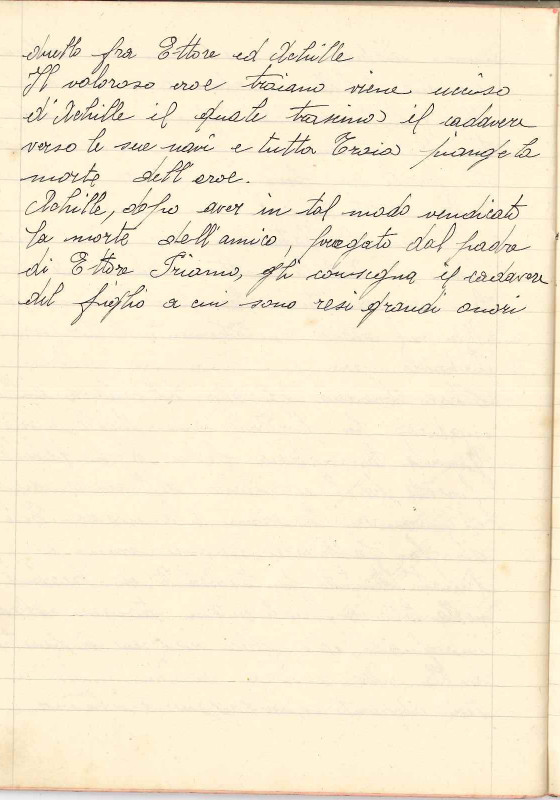 duello fra Ettore ed Achille
Il valoroso eroe troiano viene ucciso
d'Achille il quale trascina il cadavere
verso le sue navi e tutta Troia piange la
morte dell'eroe.
Achille, dopo aver in tal modo vendicato
la morte dell'amico, pregato dal padre
di Ettore Priamo, gli consegna il cadavere
del figlio a cui sono resi grandi onori